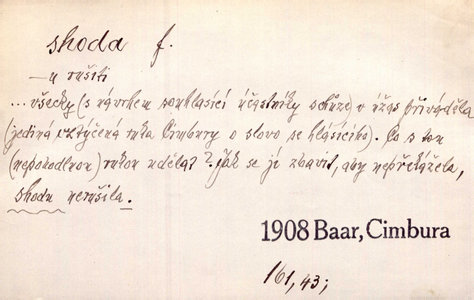 shoda f.
—u rušiti
... všecky (s návrhem souhlasící účastníky schůze) v úžas přiváděla
(jediná vztýčená ruka Cimbury o slovo se hlásícího). Co s tou
(nepohodlnou) rukou udělat? Jak se jí zbavit, aby nepřekážela,
shodu nerušila.
1908 Baar, Cimbura
161,43;